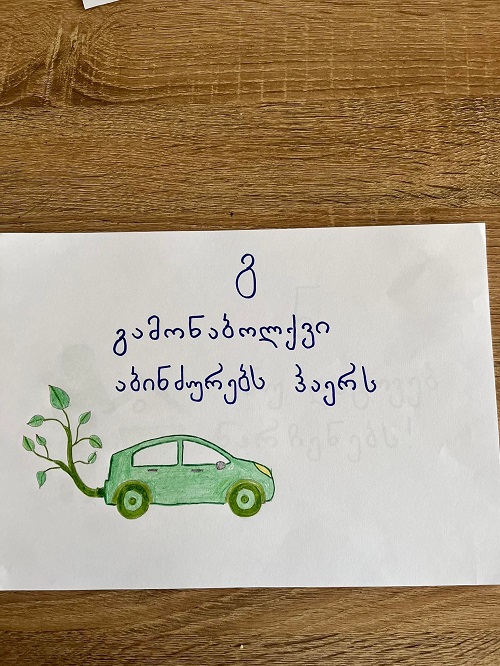 გ
გამონაბოლქვი
აბინძურებს ჰაერს